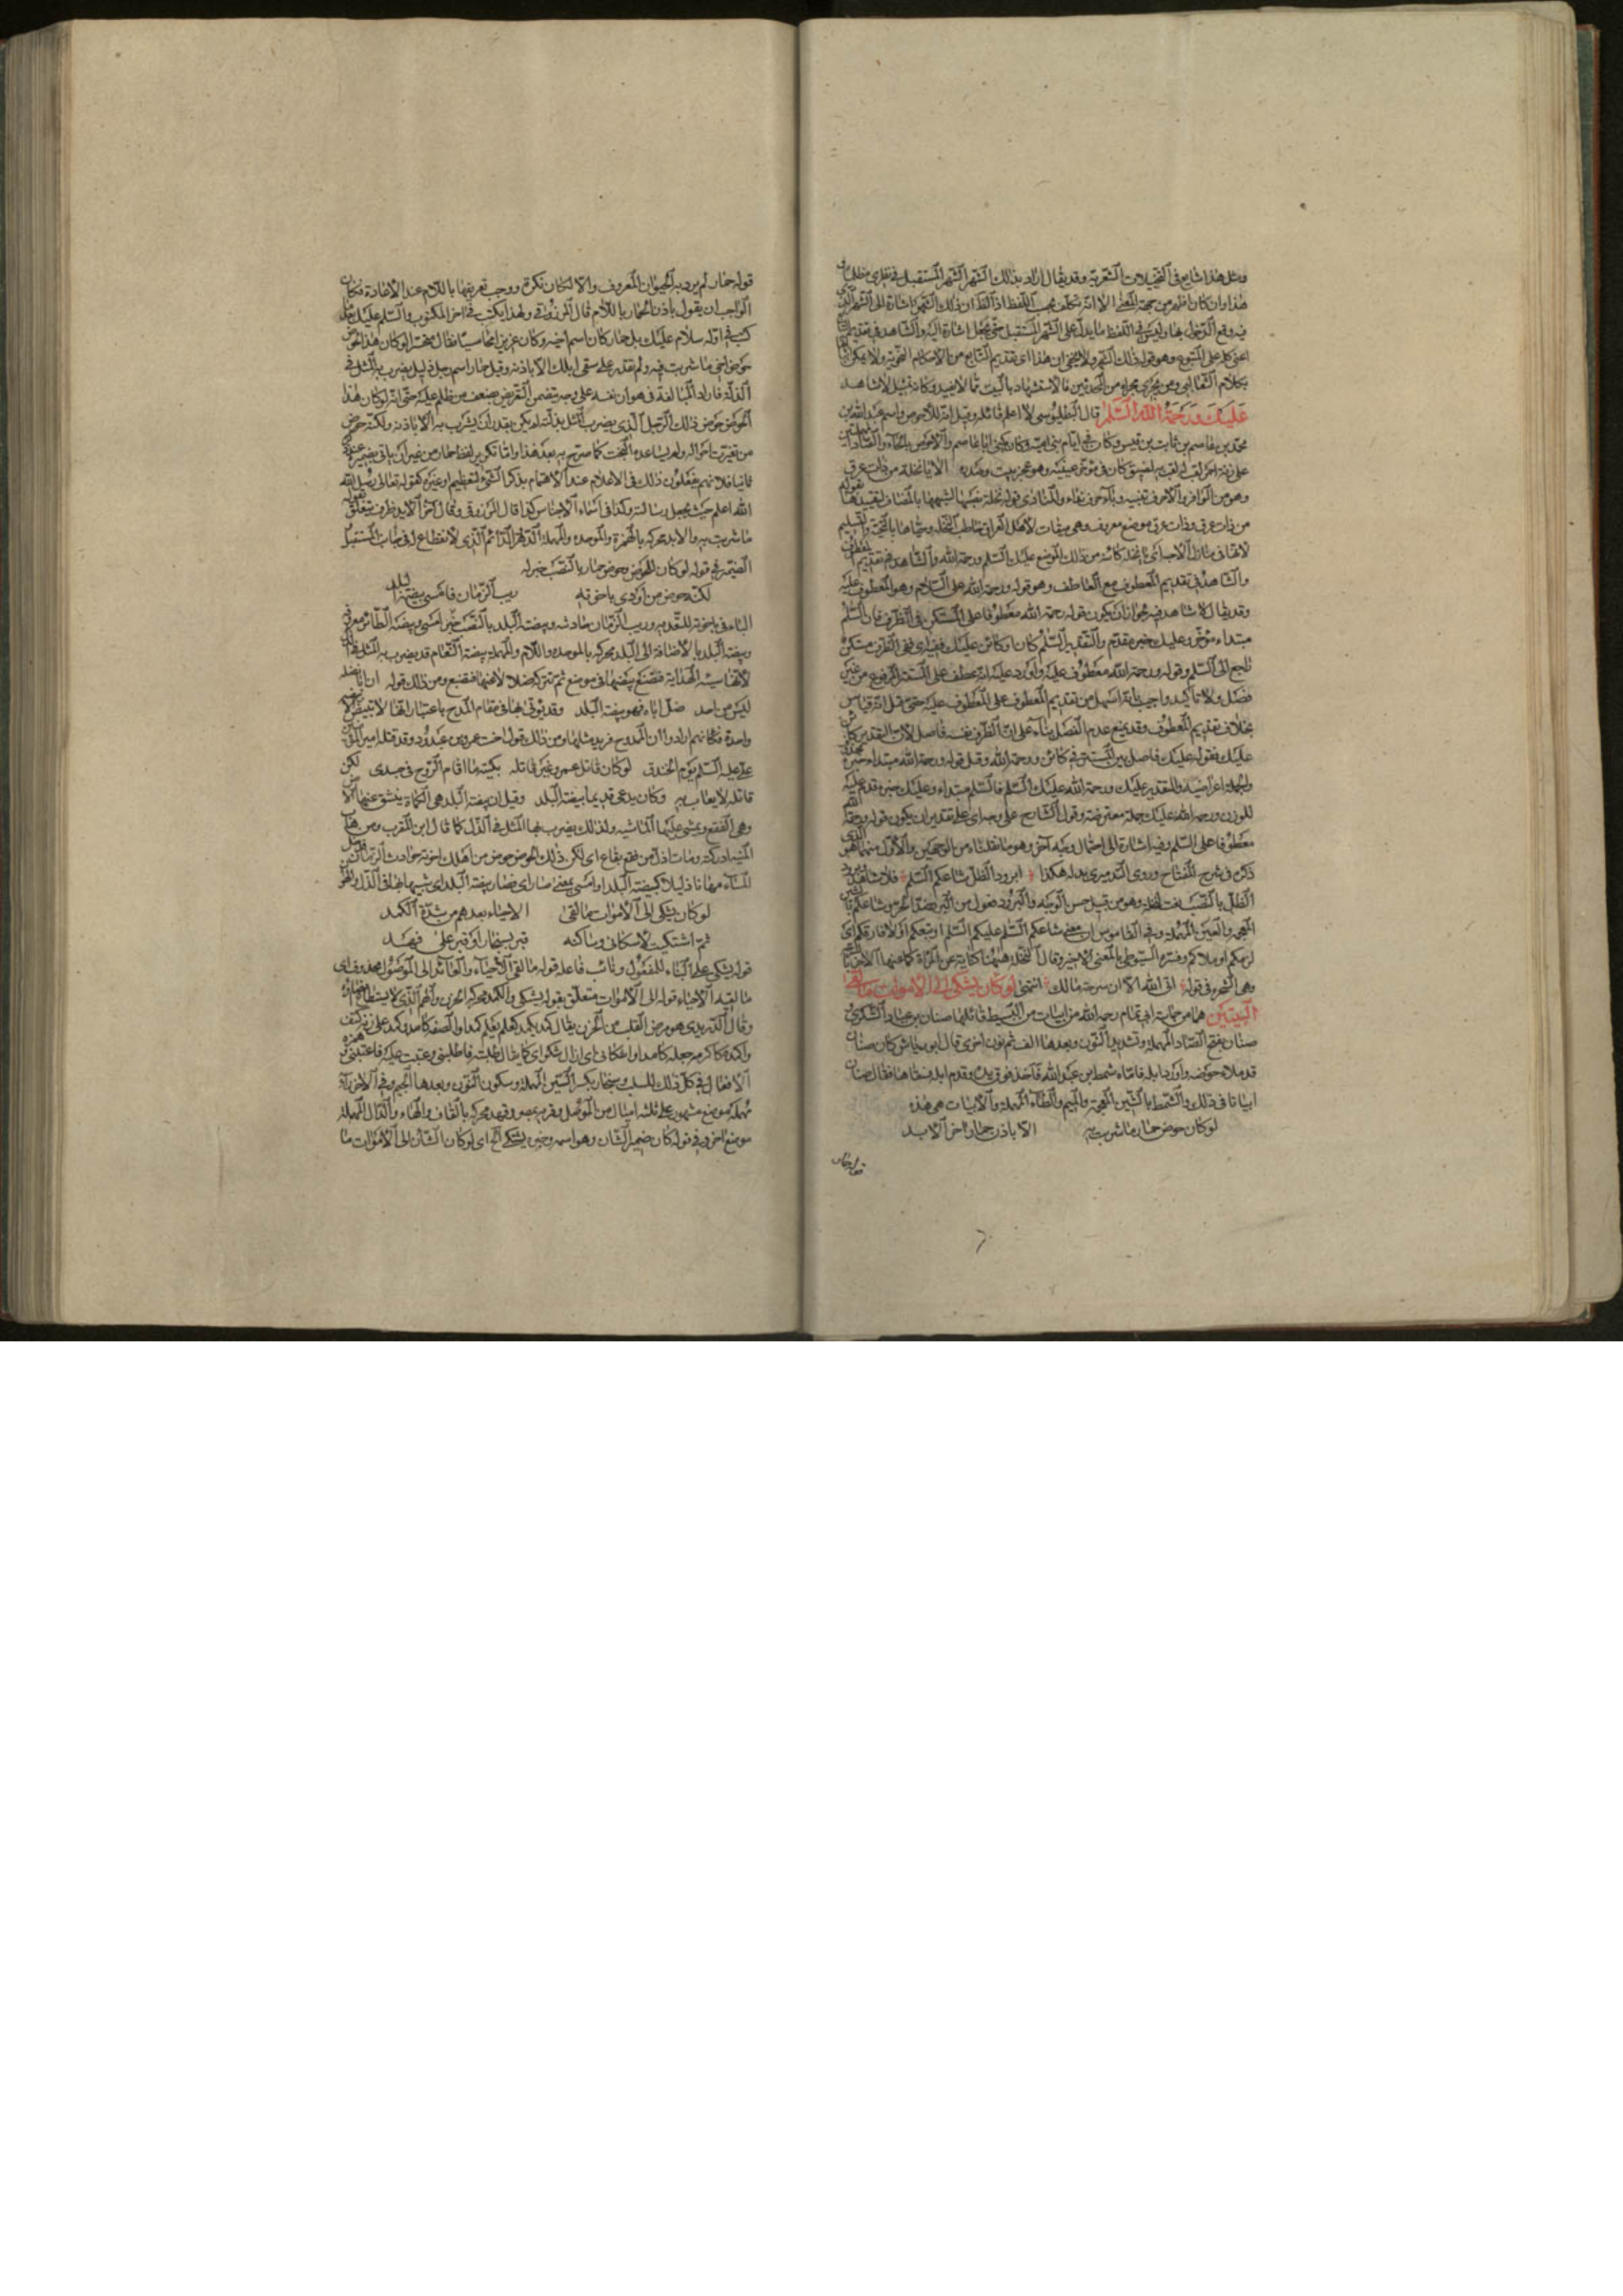 ومثل هذا شايع في التخيلات الشعرية وقد يقال اراد بذلك الشهر الشهر المستقبل
هذا وان كان اظهر من جهة المعنى الا انه تكلف بحسب اللفظ
فيه وقع الدخول بها وليس في اللفظ ما يدل على الشهر المستقبل حتى يجعل اشارة اليه والشاهد في تقديم
اعنى كله على المتبوع وهو قوله ذلك الشهر ولا يخفى ان هذا اى تقديم التابع من الاحكام النحوية ولا يمكن
بكلام الثعالبى ومن يجرى مجراه من المحدثين فالاستشهاد بالبيت مما لا يفيد وكانه تمثيل لا شاهد
عليك ورحمة الله السلم قال البطليوسى لا اعلم قائله وقيل انه للاحوص واسم عبد الله بن
محمد بن عاصم بن ثابت بن قيس وكان في ايام بنى امية وكان يكنى ابا عاصم والاحوص بالحاء والصاد
على زنة احمر لقب لقب به لضيق كان في مؤخر عينيه وهو عجز بيت وصدره الا يا نخلة من ذات عرق
وهو من الوافر والا حرف تنبيه ويا حرف نداء والمنادى قوله نخلة نصبها لشبهها بالمضاف
من ذات عرق وذات عرق موضع معروف وهى ميقات لاهل العراق خاطب النخلة وحياها بالتحية والتسليم
لانها في منازل الاحباء اى يا نخلة كائنة من ذلك الموضع عليك السلم ورحمة الله والشاهد في تقديم
والشاهد في تقديم المعطوف مع العاطف وهو قوله ورحمة الله على السلام وهو المعطوف عليه
وقد يقال لا شاهد فيه لجواز ان يكون قوله رحمة الله معطوفا على المستكن في الظرف فان السلم
مبتداء مؤخر وعليك خبره مقدم والتقدير السلم كان او كائن عليك ففيه اى في الظرف مستكن
راجع الى السلم وقوله ورحمة الله معطوف عليه واورد عليه انه عطف على المستتر المرفوع من غير
فصل ولا تاكيد واجيب بانه اسهل من تقديم المعطوف على المعطوف عليه حتى قيل انه قياس
بخلاف تقديم المعطوف وقد يمنع عدم الفصل بناء على ان الظرف نفسه فاصل لان التقدير كائن
عليك فقوله عليك فاصل بين المستتر في كائن ورحمة الله وقيل قوله ورحمة الله مبتداء خبره
والجملة اعتراضية والتقدير عليك ورحمة الله عليك السلم فالسلم مبتداء وعليك خبره قدم عليه
للوزن ورحمة الله عليك جملة معترضة وقول الشارح على وجه اى على تقدير ان يكون قوله ورحمة
معطوفا على السلم وفيه اشارة الى احتمال وجه آخر وهو ما نقلناه من الوجهين والاول منهما هو
ذكره في شرح المفتاح وروى الدميرى بدله هكذا ابرود الظل شاعكم السلم فلا شاهد
الظل بالنصب نعت لنخلة وهو من قبيل حسن الوجه والبرود فعول من البرد ضد الحر وشاعكم
المعجمة والعين المهملة وفي القاموس ان معنى شاعكم السلم عليكم السلم او تبعكم او لا فارقكم اى
لزمكم او ملاكم وفسره السيوطى بالمعنى الاخير وقال النخلة ههنا كناية عن المراة كما عنها الاخر
وهى الشجره في قوله ابى الله الا ان سرحة مالك انتهى لو كان يشكى الى الاموات ما لقى
البيتين هما من حماسة ابى تمام رحمه الله من ابيات من البسيط قائلهما صنان بن عباد اليشكرى
صنان بفتح الصاد المهملة وتشديد النون وبعدها الف ثم نون اخرى قال ابو رياش كان صنان
قد ملا حوضه واورد ابله فاتاه شمط بن عبد الله فاخذ فوق يده وقدم ابله فسقاها فقال صنان
ابياتا في ذلك والشمط بالشين المعجمة والميم والطاء المهملة والابيات هى هذه
لو كان حوض حمار ما شربت به الا باذن حمار اخر الابد
قوله حمار
قوله حمار لم يرد به الحيوان المعروف والا لكان نكرة ووجب تعريفها باللام عند الاعادة فكان
الواجب ان يقول باذن الحمار باللام قال المرزوقى ولهذا يكتب في اخر المكتوب والسلم عليك
كتب في اوله سلام عليك بل حمار كان اسم اخيه وكان عزيزا
حوض اخى ما شربت به ولم تقدر على سقى ابلك الا باذنه وقيل حمار اسم رجل ذليل يضرب به المثل في
الذلة فاراد المبالغة في هوان نفسه على وجه يتضمن التقريض بضعف من ظلم عليه حتى انه لو كان هذا
الحوض حوض ذلك الرجل الذى يضرب المثل بذلته لم يكن يقدر ان يشرب به الا باذنه ولكنه حوض
من تغيرت احواله ولم يساعده البخت كما صرح به بعد هذا وانما تكرير لفظ حمار من غير ان ياتى بضميره
ثانيا فلانهم يفعلون ذلك في الاعلام عند الاهتمام بذكر الشئ لتعظيم او غيره كقوله تعالى رسل الله
الله اعلم حيث يجعل رسالته وكذا في اسماء الاجناس كذا قال المرزوقى وقال آخر الابد ظرف يتعلق
ما شربت به والابد محركة بالهمزة والموحدة والمهملة الدهر الدائم الذى لا انقطاع له في جانب المستقبل
الضمير في قوله لو كان للحوض وحوض حمار بالنصب خبر له
لكنه حوض من اودى باخوته ريب الزمان فامسى بيضة البلد
الباء في باخوته للتعدية وريب الزمان حادثه وبيضة البلد بالنصب خبر امسى وبيضة الطائر معروفة
وبيضة البلد بالاضافة الى البلد محركة بالموحدة واللام والمهملة بيضة النعام قد يضرب به المثل في الذل
لانها سيئة الهداية فتضع بيضها في موضع ثم تتركه ضلالا عنها فتضيع ومن ذلك قوله ان ابا نضلة
ليس من احد ضل اباه فهو بيضة البلد وقد يؤتى بها في مقام المدح باعتبار انها لا تبيض الا
واحدة فكانهم ارادوا ان الممدوح فريد مثلها ومن ذلك قول اخت عمرو بن عبدود وقد قتله امير المؤمنين
على عليه السلم يوم الخندق لو كان قاتل عمرو غير قاتله بكيته ما اقام الروح في جسدى لكن
قاتله لا يعاب به وكان يدعى قديما بيضة البلد وقيل ان بيضة البلد هى الكماة ينشق عنها الارض
وهى الفقع ويمشى عليها الماشية ولذلك يضرب بها المثل في الذل كما قال ابن المقرب ومن
المنية ادركته ومات اذل من فقع بقاع اى لكن ذلك الحوض حوض من اهلك اخوته حوادث الزمان
المساء مهانا ذليلا كبيضة البلد او امسى بمعنى صار اى صار بيضة البلد اى شبيها بها في الذل والهوان
لو كان يشكى الى الاموات ما لقى الاحياء بعدهم من شدة الكمد
ثم اشتكيت لاشكانى وساكنه قبر بسنجار او قبر على قهد
قوله يشكى على البناء للمفعول ونائب فاعله قوله ما لقى الاحياء والعائد الى الموصول محذوف اى
ما لقيه الاحياء قوله الى الاموات متعلق بقوله يشكى والكمد محركة الحزن والهم الذى لا يستطاع امضاؤه
وقال الدريدى هو مرض القلب من الحزن يقال كمد يكمد كعلم يعلم كمدا والصفة كامد وكمد على زنة كتف
واكمده كاكرمه جعله كامدا واشكانى اى ازال شكواى كما يقال طلبته فاطلبنى وعتبت عليه فاعتبنى
الافعال في كل ذلك للسلب وسنجار بكسر السين المهملة وسكون النون وبعدها الجيم وفي الاخر راء
مهملة موضع مشهور على ثلثة اميال من الموصل وقرية بمصر وقهد محركة بالقاف والهاء والدال المهملة
موضع اخر وفي قوله كان ضمير الشان وهو اسمه وخبره يشكى الخ اى لو كان الشان الى الاموات ما